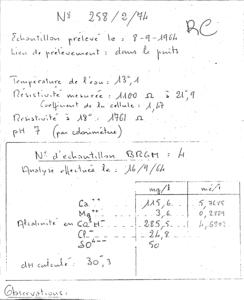 N° 258/2/74
RC
Echantillon prélevé le : 8-9-1964
Lieu de prélèvement : dans le puits
Température de l'eau : 13°,1
Résistivité mesurée : 1100 Ω à 21°,9
Coefficient de la cellule : 1,67
Résistivité à 18° : 1761 Ω
pH 7 (par colorimétrie)
N° d'échantillon BRGM : 4
Analyse effectuée le : 16/9/64
mg/l
Ca++ 115,6
Mg++ 3,6
Alcalinité en 285,5
Cl- 24,8
SO4-- 50
dH calculé : 30°,3
Observations :